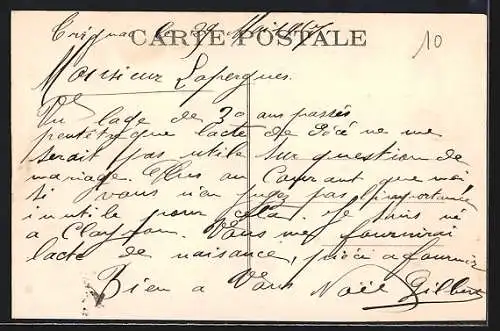 Trignac le 29
CARTE POSTALE
10
Monsieur Lapergues.
Vu lage de 30 ans passés
peutêtre que lacte de Décé ne me
serait pas utile sur question de
mariage. Plus au Courant que moi
si vous n'en jugez pas l'importance
inutile pour cela. Je suis né
a Vous me fournirai
lacte de naisance, pièce a fournir
Bien a Vous Noël Gilbert